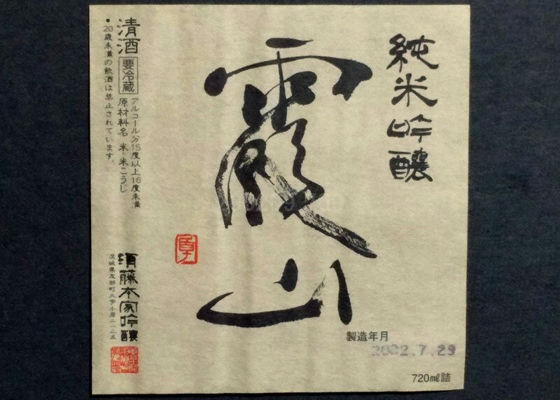 純米吟醸
霞山
製造年月
2022.7.29
720㎖詰
清酒
要冷蔵
アルコール分15度以上16度未満
原材料名 米・米こうじ
●20歳未満の飲酒は禁止されています。
須藤本家吟醸